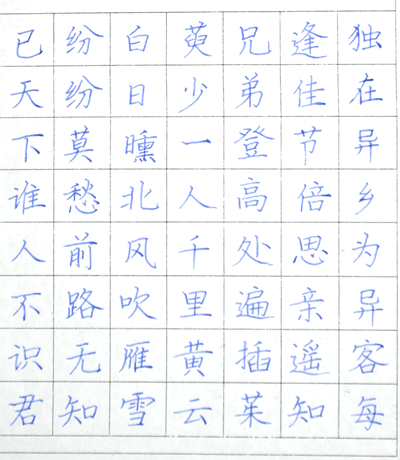 独在异乡为异客每
逢佳节倍思亲遥知
兄弟登高处遍插茱
萸少一人千里黄云
白日曛北风吹雁雪
纷纷莫愁前路无知
已天下谁人不识君